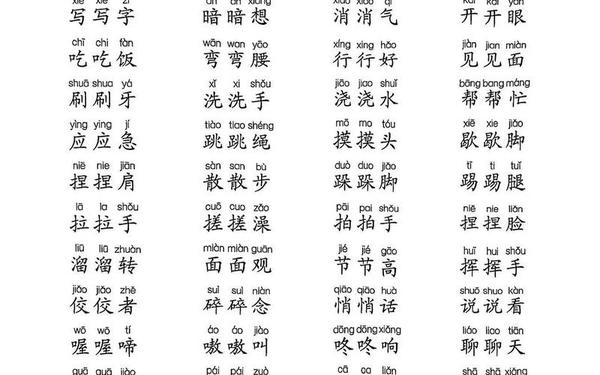 写写字 暗暗想 消消气 开开眼
chī chi fàn wān wan yāo xíng xing hǎo jiàn jian miàn
吃吃饭 弯弯腰 行行好 见见面
shuā shua yá xǐ xi shǒu jiāo jiao shuǐ bāng bang máng
刷刷牙 洗洗手 浇浇水 帮帮忙
yìng ying jí tiào tiao shéng mō mo tóu xiē xie jiǎo
应应急 跳跳绳 摸摸头 歇歇脚
niē nie jiān sàn san bù duò duo jiǎo tī ti tuǐ
捏捏肩 散散步 跺跺脚 踢踢腿
lā la shǒu cuō cuo zǎo pāi pai shǒu niē nie liǎn
拉拉手 搓搓澡 拍拍手 捏捏脸
liū liū zhuàn miàn miàn guān jié jié gāo huī hui shǒu
溜溜转 面面观 节节高 挥挥手
jiǎo jiǎo zhě suì suì niàn qiāo qiāo huà shuō shuo kàn
佼佼者 碎碎念 悄悄话 说说看
wō wō tí áo áo jiào dōng dōng xiǎng liáo liao tiān
喔喔啼 嗷嗷叫 咚咚响 聊聊天